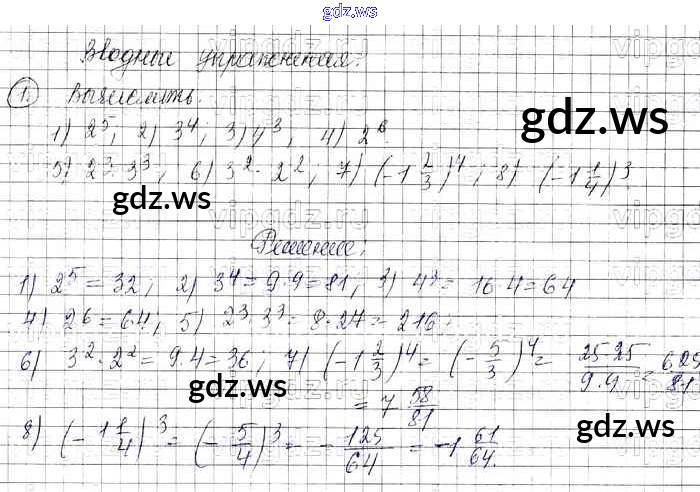 gdz.ws
Вводные упражнения.
1. Вычислить.
1) 2⁵; 2) 3⁴; 3) 4³; 4) 2⁶.
5) 2³·3³; 6) 3²·2²; 7) (-1 2/3)⁴; 8) (-1 1/4)³.
Решение:
1) 2⁵ = 32; 2) 3⁴ = 9·9 = 81; 3) 4³ = 16·4 = 64
4) 2⁶ = 64; 5) 2³·3³ = 8·27 = 216.
6) 3²·2² = 9·4 = 36; 7) (-1 2/3)⁴ = (-5/3)⁴ = 25·25/9·9 = 625/81
= 7 58/81
8) (-1 1/4)³ = (-5/4)³ = -125/64 = -1 61/64.
gdz.ws
gdz.ws
gdz.ws
gdz.ws